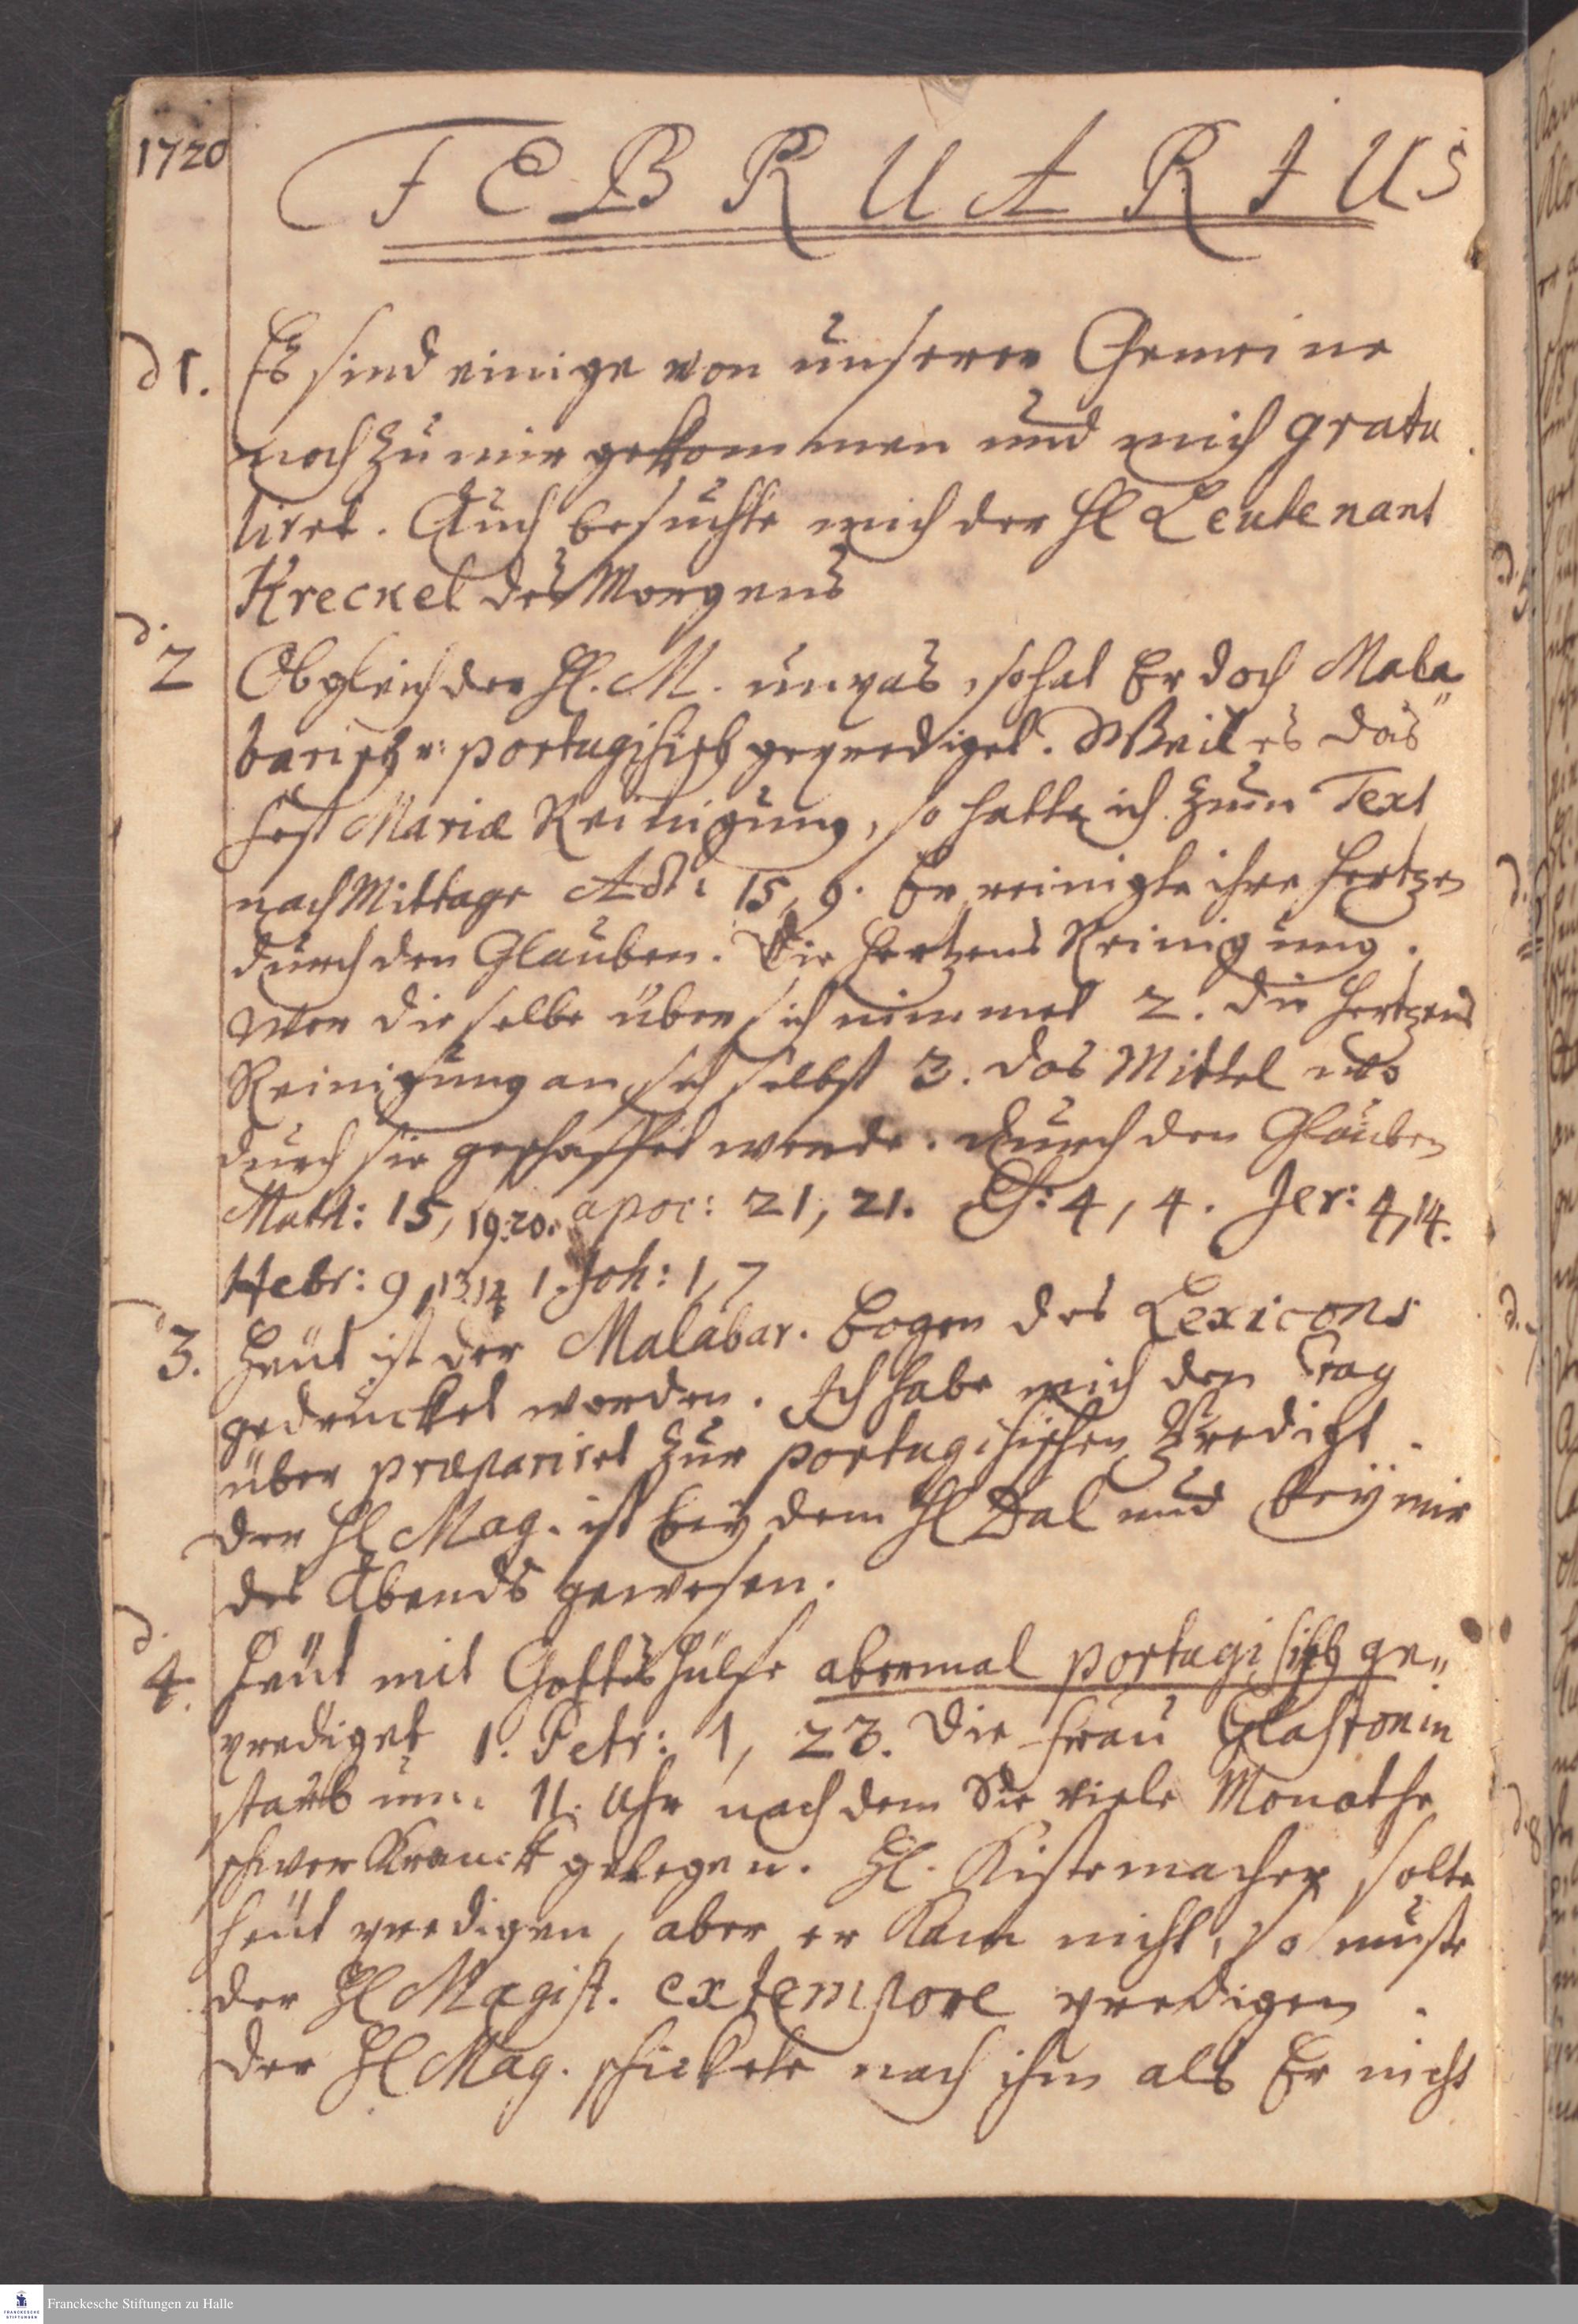 1720
FEBRUARIUS
d 1. Es sind einige von unserer Gemeine
noch zu mir gekommen und mich gratu
liret. Auch besuchte mich der Hl Leutenant
Kreckel des Morgens
d. 2 Obgleich der Hl. M. unpas, so hat Er doch Mala„
barisch u: portugisisch geprediget. Weil es das
Fest Mariæ Reinigung, so hatte ich zum Text
nach Mittage Act: 15, 9. Er reinigte ihre Hertzen
durch den Glauben. Die Hertzens Reinigung.
Wer dieselbe über sich nimmet 2. die Hertzens
Reinigung an sich selbst 3. das Mittel wo
durch sie geschaffet werde. durch den Glauben
Matth: 15, 19.20. apoc: 21, 21. Es: 4, 4. Jer: 4, 14.
Hebr: 9, 13.14. 1. Joh: 1, 7
d 3. Heut ist der Malabar. Bogen des Lexicons
gedrucket worden. Ich habe mich den Tag
über præpariret zur portugisischen Predigt.
Der Hl Mag. ist bey dem Hl Dal und bey mir
des Abends gewesen.
d. 4. Heut mit Gottes Hülfe abermal portugisisch ge„
prediget 1. Petr: 1, 23. Die Frau Clasronin
starb um 11. Uhr nach dem Sie viele Monathe
schwer Kranck gelegen. Hl. Kistemacher solte
heut predigen, aber er Kam nicht, so muste
der Hl Magist. extempore predigen.
Der Hl Mag. schickete nach ihm als Er nicht
Franckesche Stiftungen zu Halle